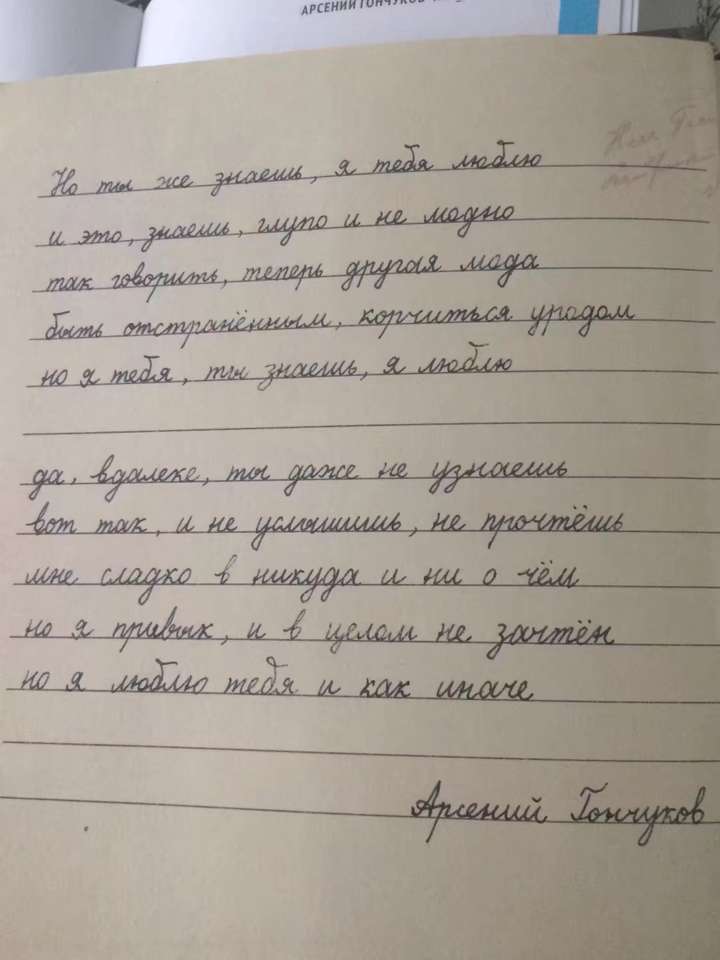 АРСЕНИЙ ГОНЧУКОВ
Но ты же знаешь, я тебя люблю
и это, знаешь, глупо и не модно
так говорить, теперь другая мода
быть отстранённым, корчиться уродом
но я тебя, ты знаешь, я люблю
да, вдалеке, ты даже не узнаешь
вот так, и не услышишь, не прочтёшь
мне сладко в никуда и ни о чём
но я привык, и в целом не зачтён
но я люблю тебя и как иначе
Арсений Гончуков